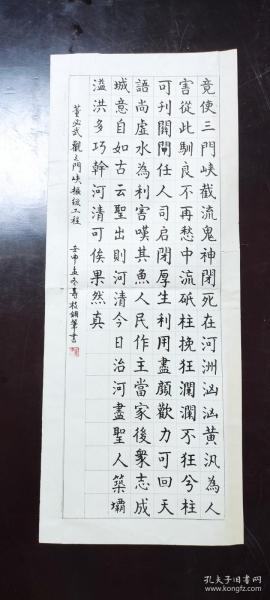 竟使三門峽截流鬼神閉死在河洲汹汹黄汎為人
害從此馴良不再愁中流砥柱挽狂瀾瀾不狂兮柱
可刊關閘任人司启閉厚生利用盡顏歡力可回天
語尚虛水為利害嘆其魚人民作主當家後衆志成
城意自如古云聖出則河清今日治河盡聖人築壩
溢洪多巧幹河清可俟果然真
董必武觀三門峽攔紱工程
壬申孟冬壽枝鋼筆書
孔夫子旧书网